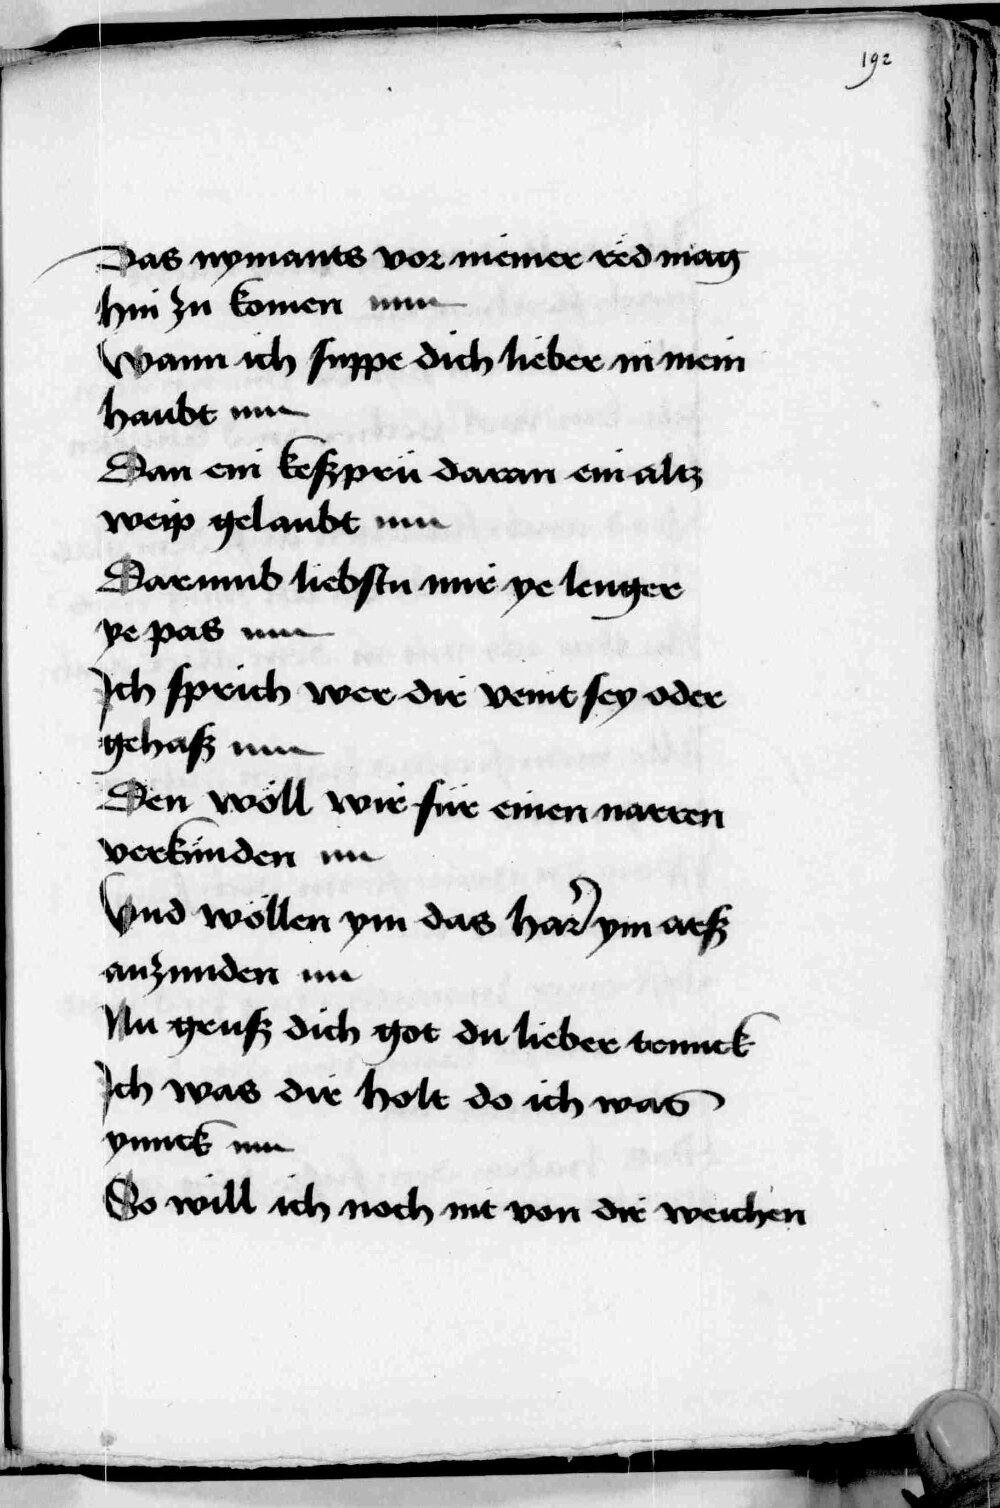 192
Das nymants vor meiner red mag
hin zu komen
Wann ich suppe dich lieber in mein
haubt
Dan ein keßprü daran ein altz
weip gelaubt
Darumb liebstu mir ye lenger
ye pas
Ich sprich wer dir veint sey oder
gehaß
Den wöll wir für einen narren
verkünden
Und wöllen ym das har ym arß
anzunden
Nu gruß dich got du lieber trunck
Ich was dir holt do ich was
yunck
So will ich noch nit von dir weichen